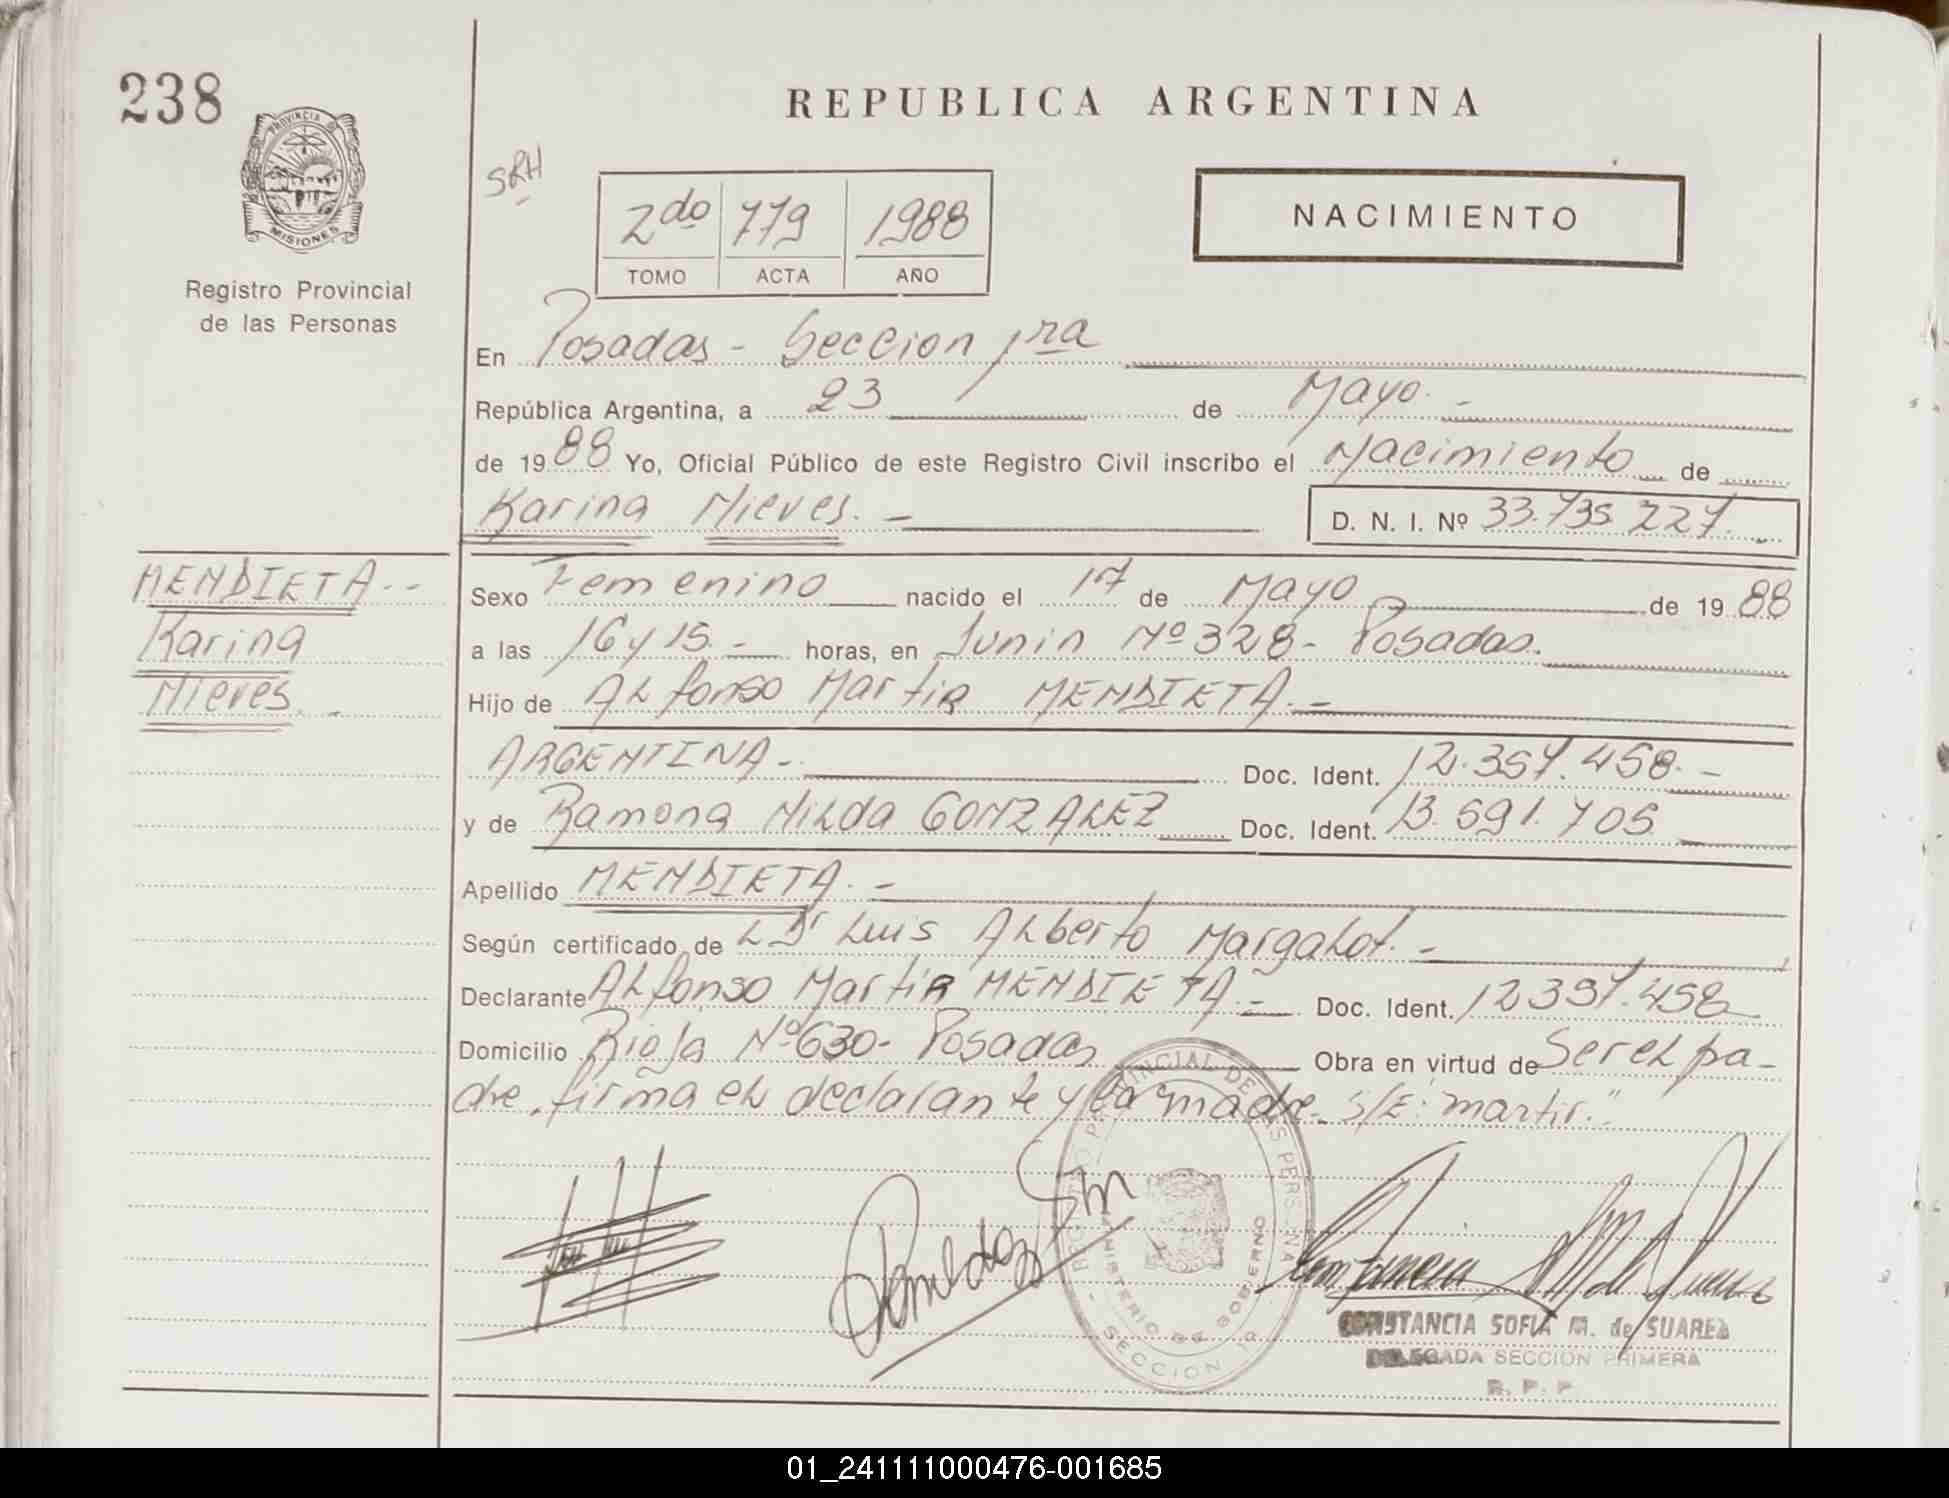 238
REPUBLICA ARGENTINA
PROVINCIA DE MISIONES
Registro Provincial
de las Personas
SRH
2do 779 1988
TOMO ACTA AÑO
NACIMIENTO
En Posadas - Seccion 1ra
República Argentina, a 23 de Mayo. -
de 1988 Yo, Oficial Público de este Registro Civil inscribo el Nacimiento de
Karina Nieves. - D. N. I. Nº 33.735.227.
MENDIETA. -
Karina
Nieves. -
Sexo Femenino nacido el 17 de Mayo de 1988
a las 16 y 15. - horas, en Junin Nº 328 - Posadas.
Hijo de Alfonso Martir MENDIETA. -
ARGENTINA - Doc. Ident. 12.357.458. -
y de Ramona Nilda GONZALEZ Doc. Ident. 13.591.705
Apellido MENDIETA. -
Según certificado de L Dr Luis Alberto Margalot. -
Declarante Alfonso Martir MENDIETA. - Doc. Ident. 12357.458
Domicilio Rioja Nº 630 - Posadas Obra en virtud de Ser el pa-
dre, firma el declarante y la madre. S/E: "martir."
REGISTRO PROVINCIAL DE LAS PERSONAS
MINISTERIO DE GOBIERNO
- SECCION 1a -
CONSTANCIA SOFIA M. de SUAREZ
DELEGADA SECCION PRIMERA
R. P. P.
01_241111000476-001685